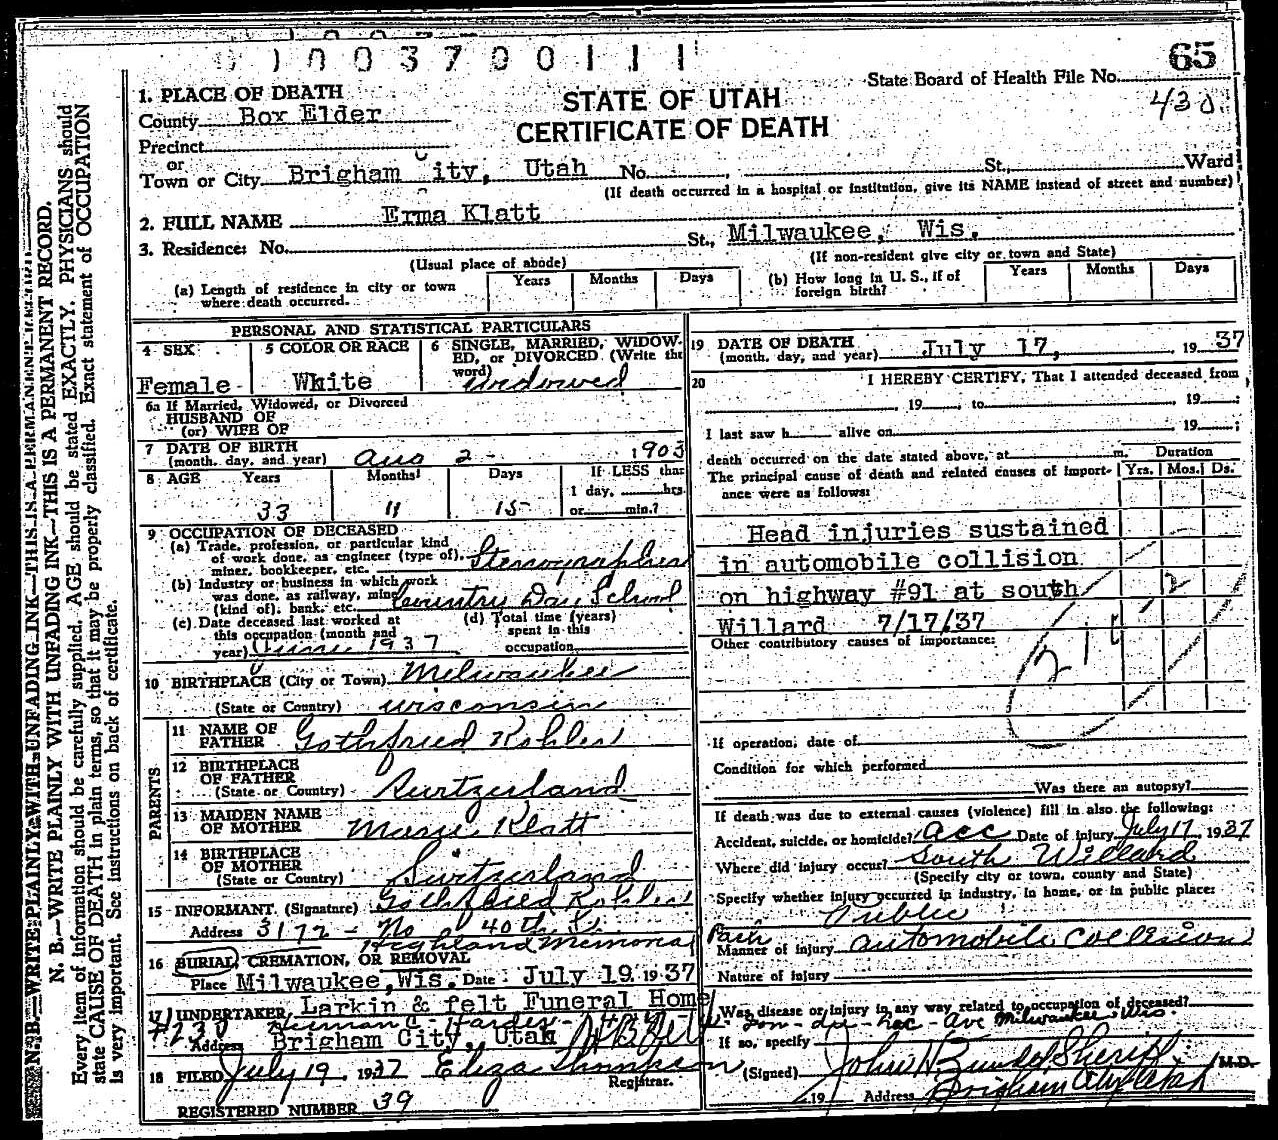 1 0 0 3 7 0 0 1 1 1
65
State Board of Health File No.
430
STATE OF UTAH
CERTIFICATE OF DEATH
1. PLACE OF DEATH
County Box Elder
Precinct
or
Town or City Brigham City, Utah No. St., Ward
(If death occurred in a hospital or institution, give its NAME instead of street and number)
2. FULL NAME Erma Klatt
3. Residence: No. St., Milwaukee, Wis.
(Usual place of abode) (If non-resident give city or town and State)
(a) Length of residence in city or town where death occurred. Years Months Days
(b) How long in U. S., if of foreign birth? Years Months Days
PERSONAL AND STATISTICAL PARTICULARS
4 SEX
Female
5 COLOR OR RACE
White
6 SINGLE, MARRIED, WIDOWED, or DIVORCED (Write the word)
widowed
6a If Married, Widowed, or Divorced
HUSBAND OF
(or) WIFE OF
7 DATE OF BIRTH
(month, day, and year) Aug 2 - 1903
8 AGE Years Months Days If LESS than
1 day, hrs.
or min.?
33 11 15
9 OCCUPATION OF DECEASED
(a) Trade, profession, or particular kind
of work done, as engineer (type of),
miner, bookkeeper, etc. Stenographer
(b) Industry or business in which work
was done, as railway, mine
(kind of), bank, etc. Country Day School
(c) Date deceased last worked at
this occupation (month and
year) June 1937
(d) Total time (years)
spent in this
occupation
10 BIRTHPLACE (City or Town) Milwaukee
(State or Country) Wisconsin
PARENTS
11 NAME OF
FATHER Gothfried Kohler
12 BIRTHPLACE
OF FATHER
(State or Country) Switzerland
13 MAIDEN NAME
OF MOTHER Marie Klatt
14 BIRTHPLACE
OF MOTHER
(State or Country) Switzerland
15 INFORMANT (Signature) Gothfried Kohler
Address 3172 - No 40th St.
Highland Memorial
16 BURIAL, CREMATION, OR REMOVAL
Place Milwaukee, Wis. Date July 19 1937
17 UNDERTAKER Larkin & felt Funeral Home
#230 Herman C
Address Brigham City, Utah
18 FILED July 19, 1937 Eliza Thompson
Registrar.
REGISTERED NUMBER 39
19 DATE OF DEATH
(month, day, and year) July 17, 1937
20 I HEREBY CERTIFY, That I attended deceased from
, 19 , to , 19 ;
I last saw h alive on , 19 ;
death occurred on the date stated above, at m.
Duration
The principal cause of death and related causes of importance were as follows: Yrs. Mos. Ds.
Head injuries sustained
in automobile collision
on highway #91 at south
Willard 7/17/37
Other contributory causes of importance:
If operation, date of
Condition for which performed
Was there an autopsy?
If death was due to external causes (violence) fill in also the following:
Accident, suicide, or homicide? Acc Date of injury July 17 1937
Where did injury occur? South Willard
(Specify city or town, county and State)
Specify whether injury occurred in industry, in home, or in public place:
Public
Manner of injury automobile collision
Nature of injury
Was disease or injury in any way related to occupation of deceased?
Fon-du-lac-Ave Milwaukee Wis.
If so, specify
(Signed) John Sheriff M.D.
19 Address Brigham City Utah
N. B.—WRITE PLAINLY WITH UNFADING INK—THIS IS A PERMANENT RECORD.
N. B.—WRITE PLAINLY WITH UNFADING INK—THIS IS A PERMANENT RECORD.
Every item of information should be carefully supplied. AGE should be stated EXACTLY. PHYSICIANS should
state CAUSE OF DEATH in plain terms, so that it may be properly classified. Exact statement of OCCUPATION
is very important. See instructions on back of certificate.